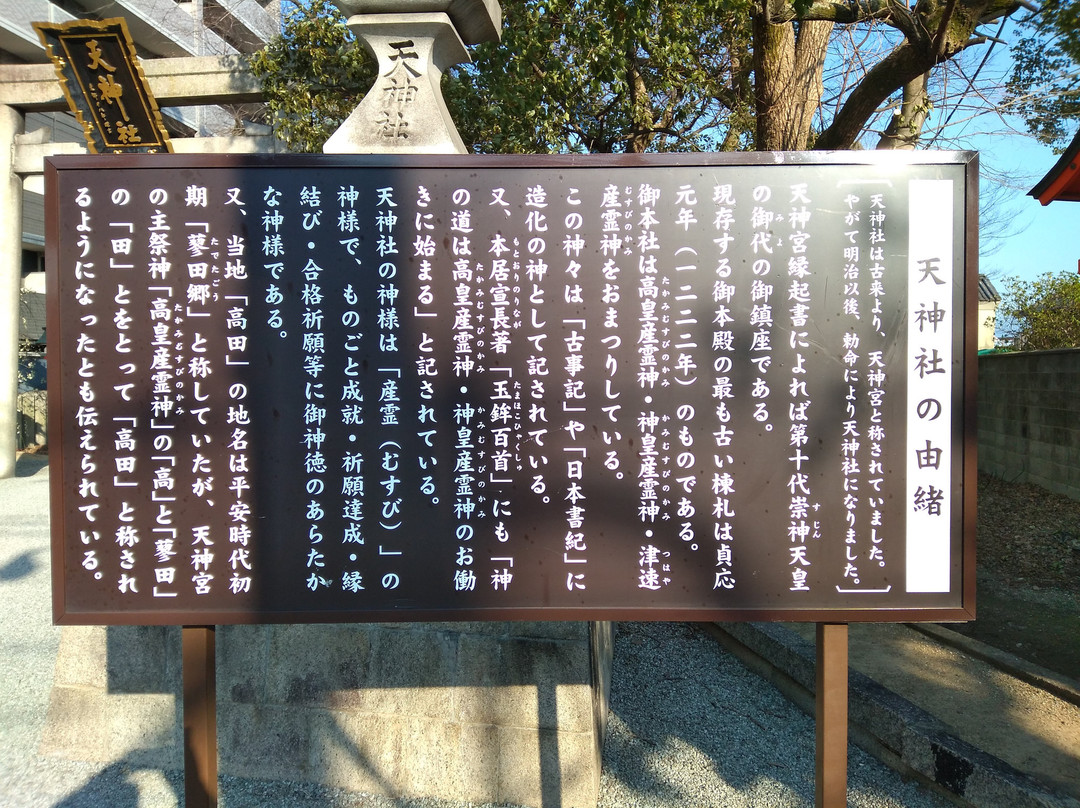 天神社
天神社
天神社の由緒
天神社は古来より、天神宮と称されていました。
やがて明治以後、勅命により天神社になりました。
天神宮縁起書によれば第十代崇神天皇
の御代の御鎮座である。
現存する御本殿の最も古い棟札は貞応
元年（一二二二年）のものである。
御本社は高皇産霊神・神皇産霊神・津速
産霊神をおまつりしている。
この神々は「古事記」や「日本書紀」に
造化の神として記されている。
又、本居宣長著「玉鉾百首」にも「神
の道は高皇産霊神・神皇産霊神のお働
きに始まる」と記されている。
天神社の神様は「産霊（むすび）」の
神様で、ものごと成就・祈願達成・縁
結び・合格祈願等に御神徳のあらたか
な神様である。
又、当地「高田」の地名は平安時代初
期「蓼田郷」と称していたが、天神宮
の主祭神「高皇産霊神」の「高」と「蓼田」
の「田」とをとって「高田」と称され
るようになったとも伝えられている。